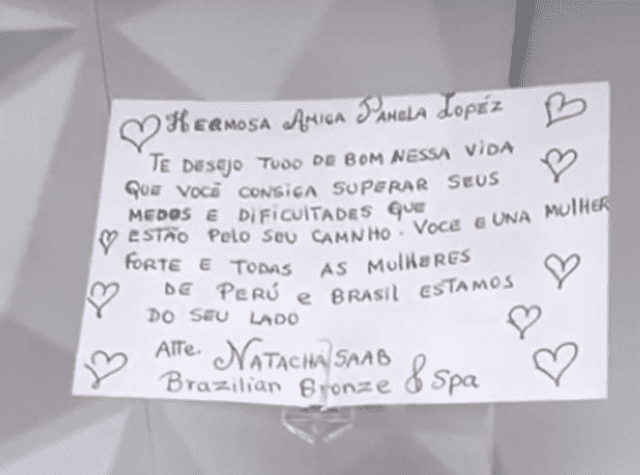 HERMOSA AMIGA PAMELA LOPÉZ
TE DESEJO TUDO DE BOM NESSA VIDA
QUE VOCÊ CONSIGA SUPERAR SEUS
MEDOS E DIFICULTADES QUE
ESTÃO PELO SEU CAMNHO. VOCE E UNA MULHER
FORTE E TODAS AS MULHERES
DE PERÚ e BRASIL ESTAMOS
DO SEU LADO
Atte. NATACHA SAAB
Brazilian Bronze & Spa